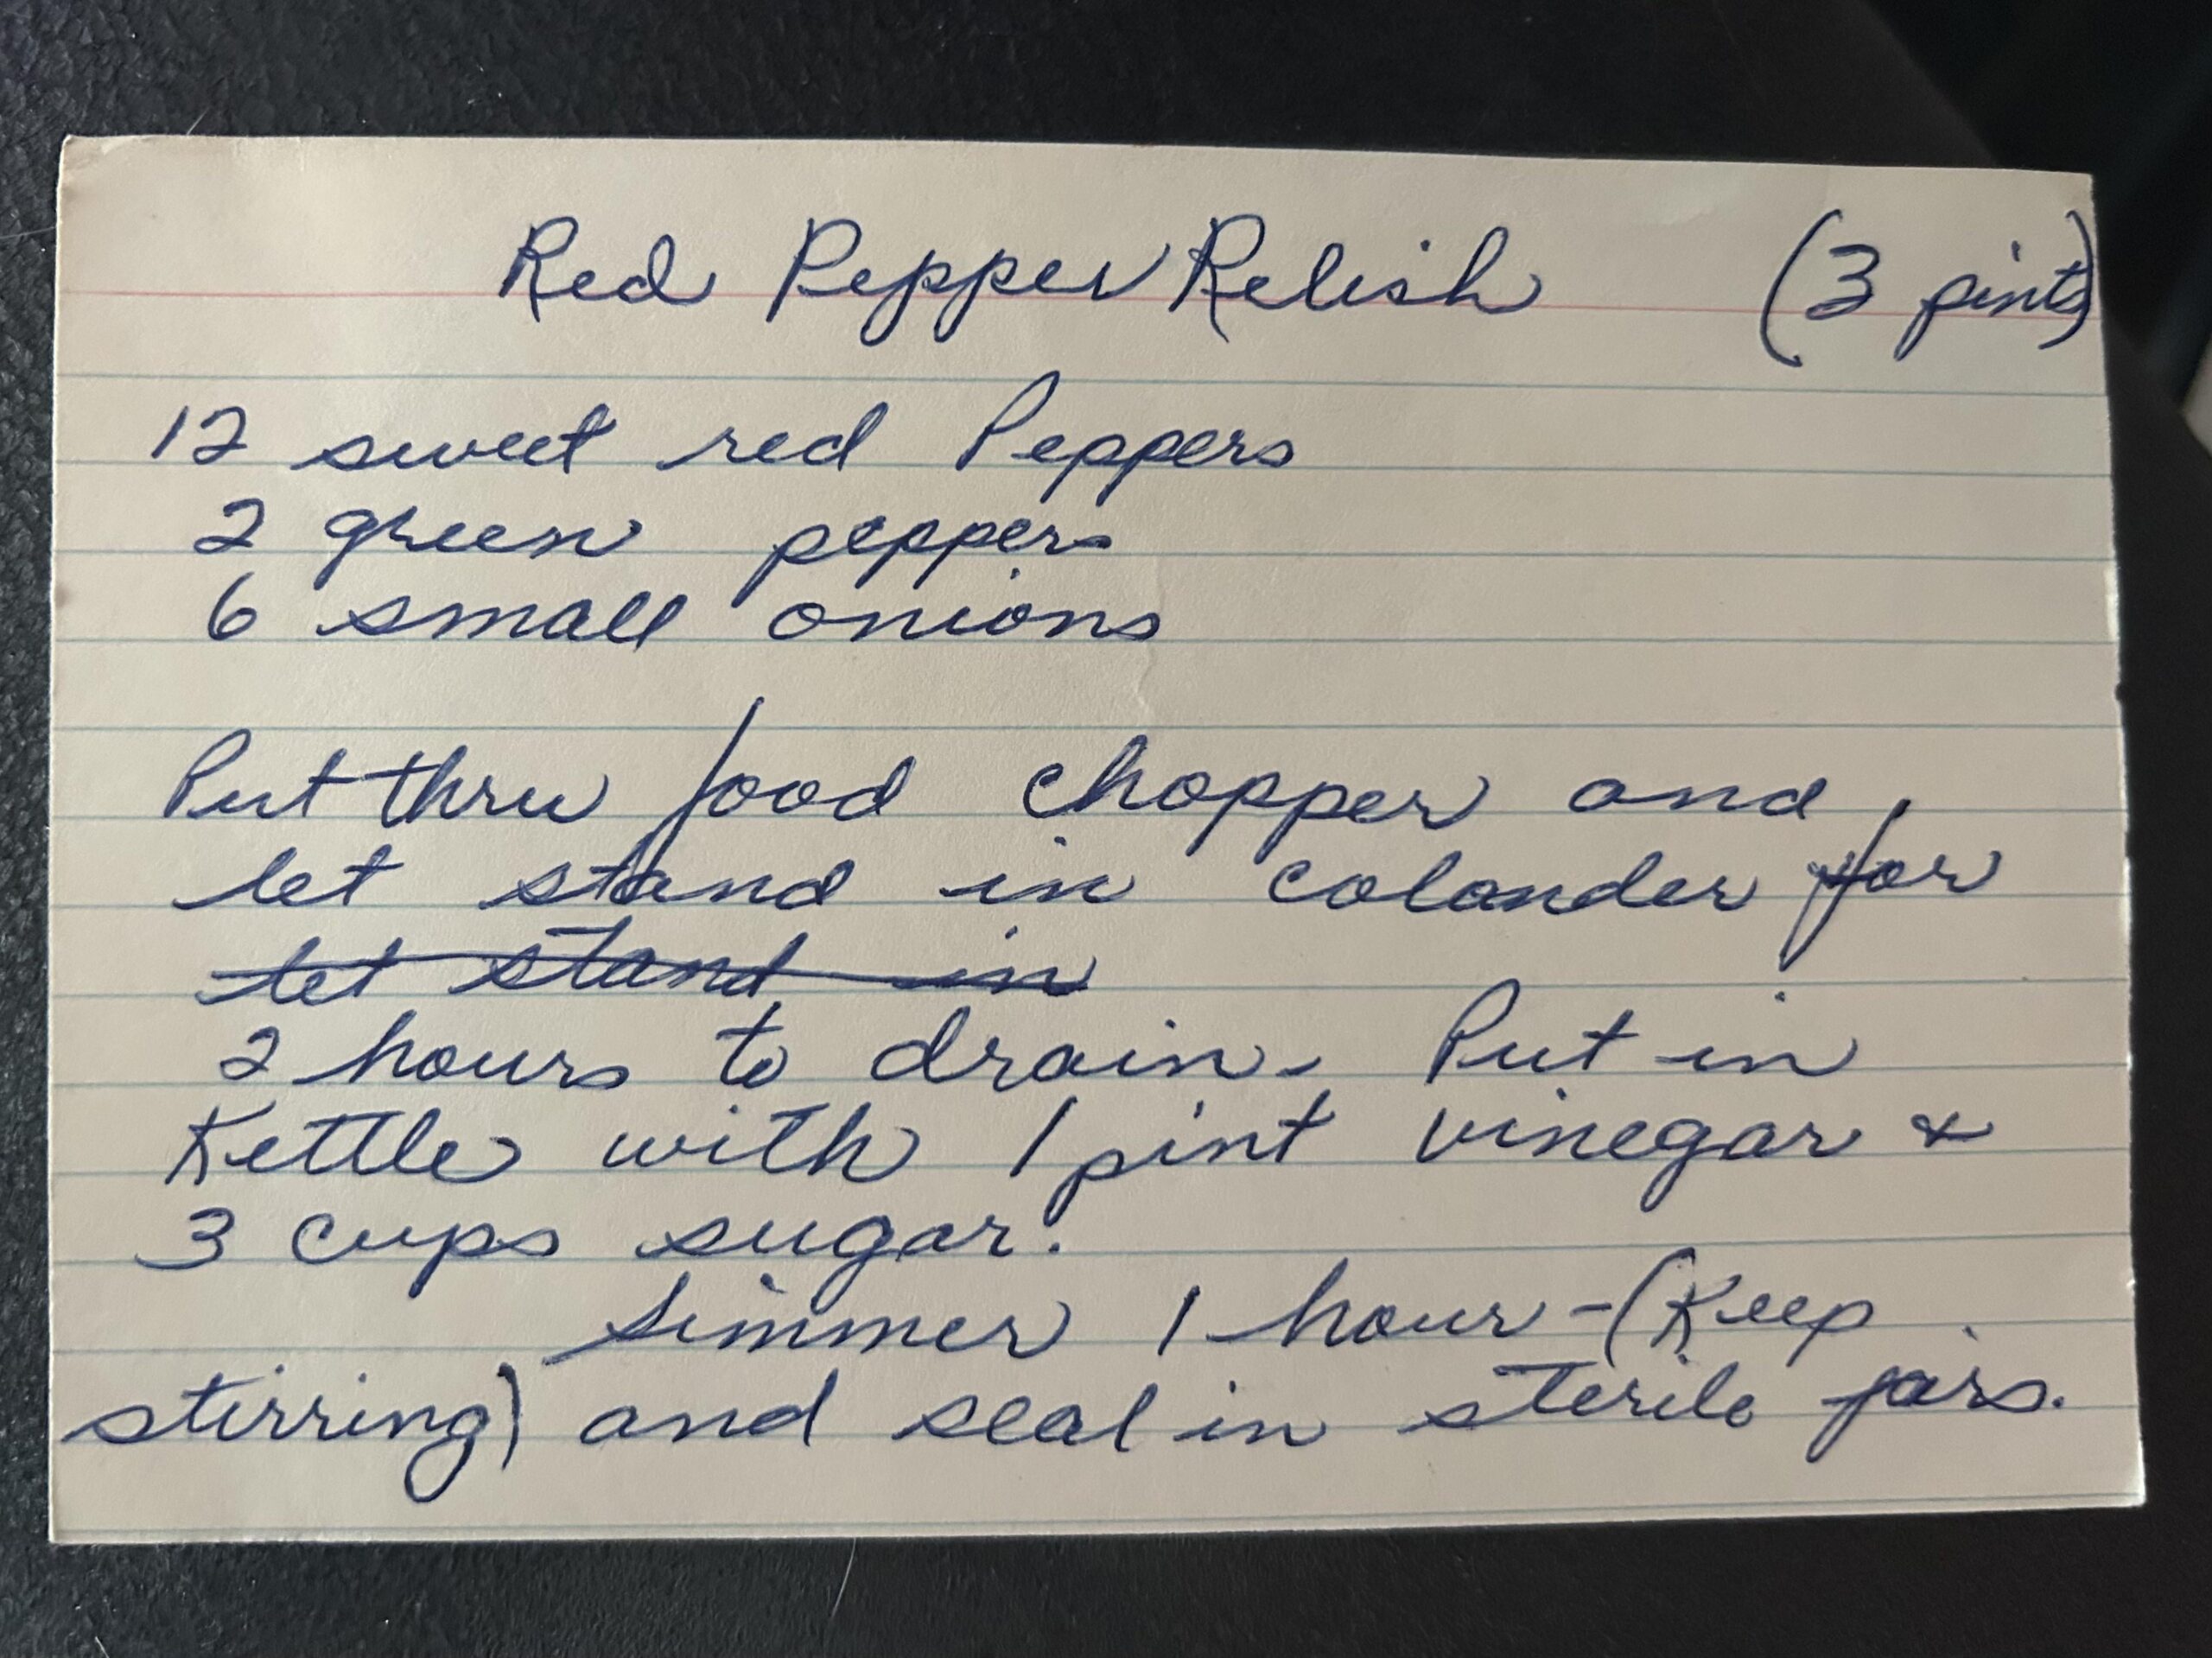 Red Pepper Relish (3 pints)
12 sweet red Peppers
2 green peppers
6 small onions
Put thru food chopper and
let stand in colander for
let stand in
2 hours to drain. Put in
Kettle with 1 pint vinegar &
3 cups sugar.
Simmer 1 hour - (Keep
stirring) and seal in sterile jars.